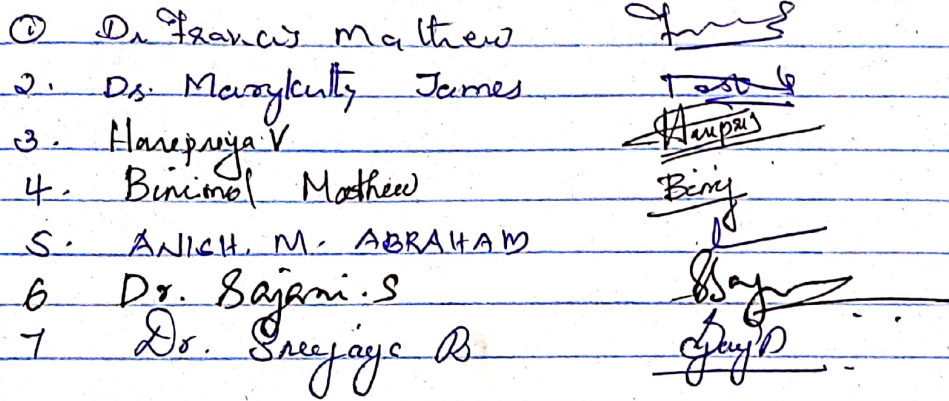 ① Dr Francis Mathew
2. Dr. Marykutty James
3. Haripriya V Haripriy
4. Bincimol Mathew Bincy
5. ANISH. M. ABRAHAM
6 Dr. Sajani.S
7 Dr. Sreejaya B